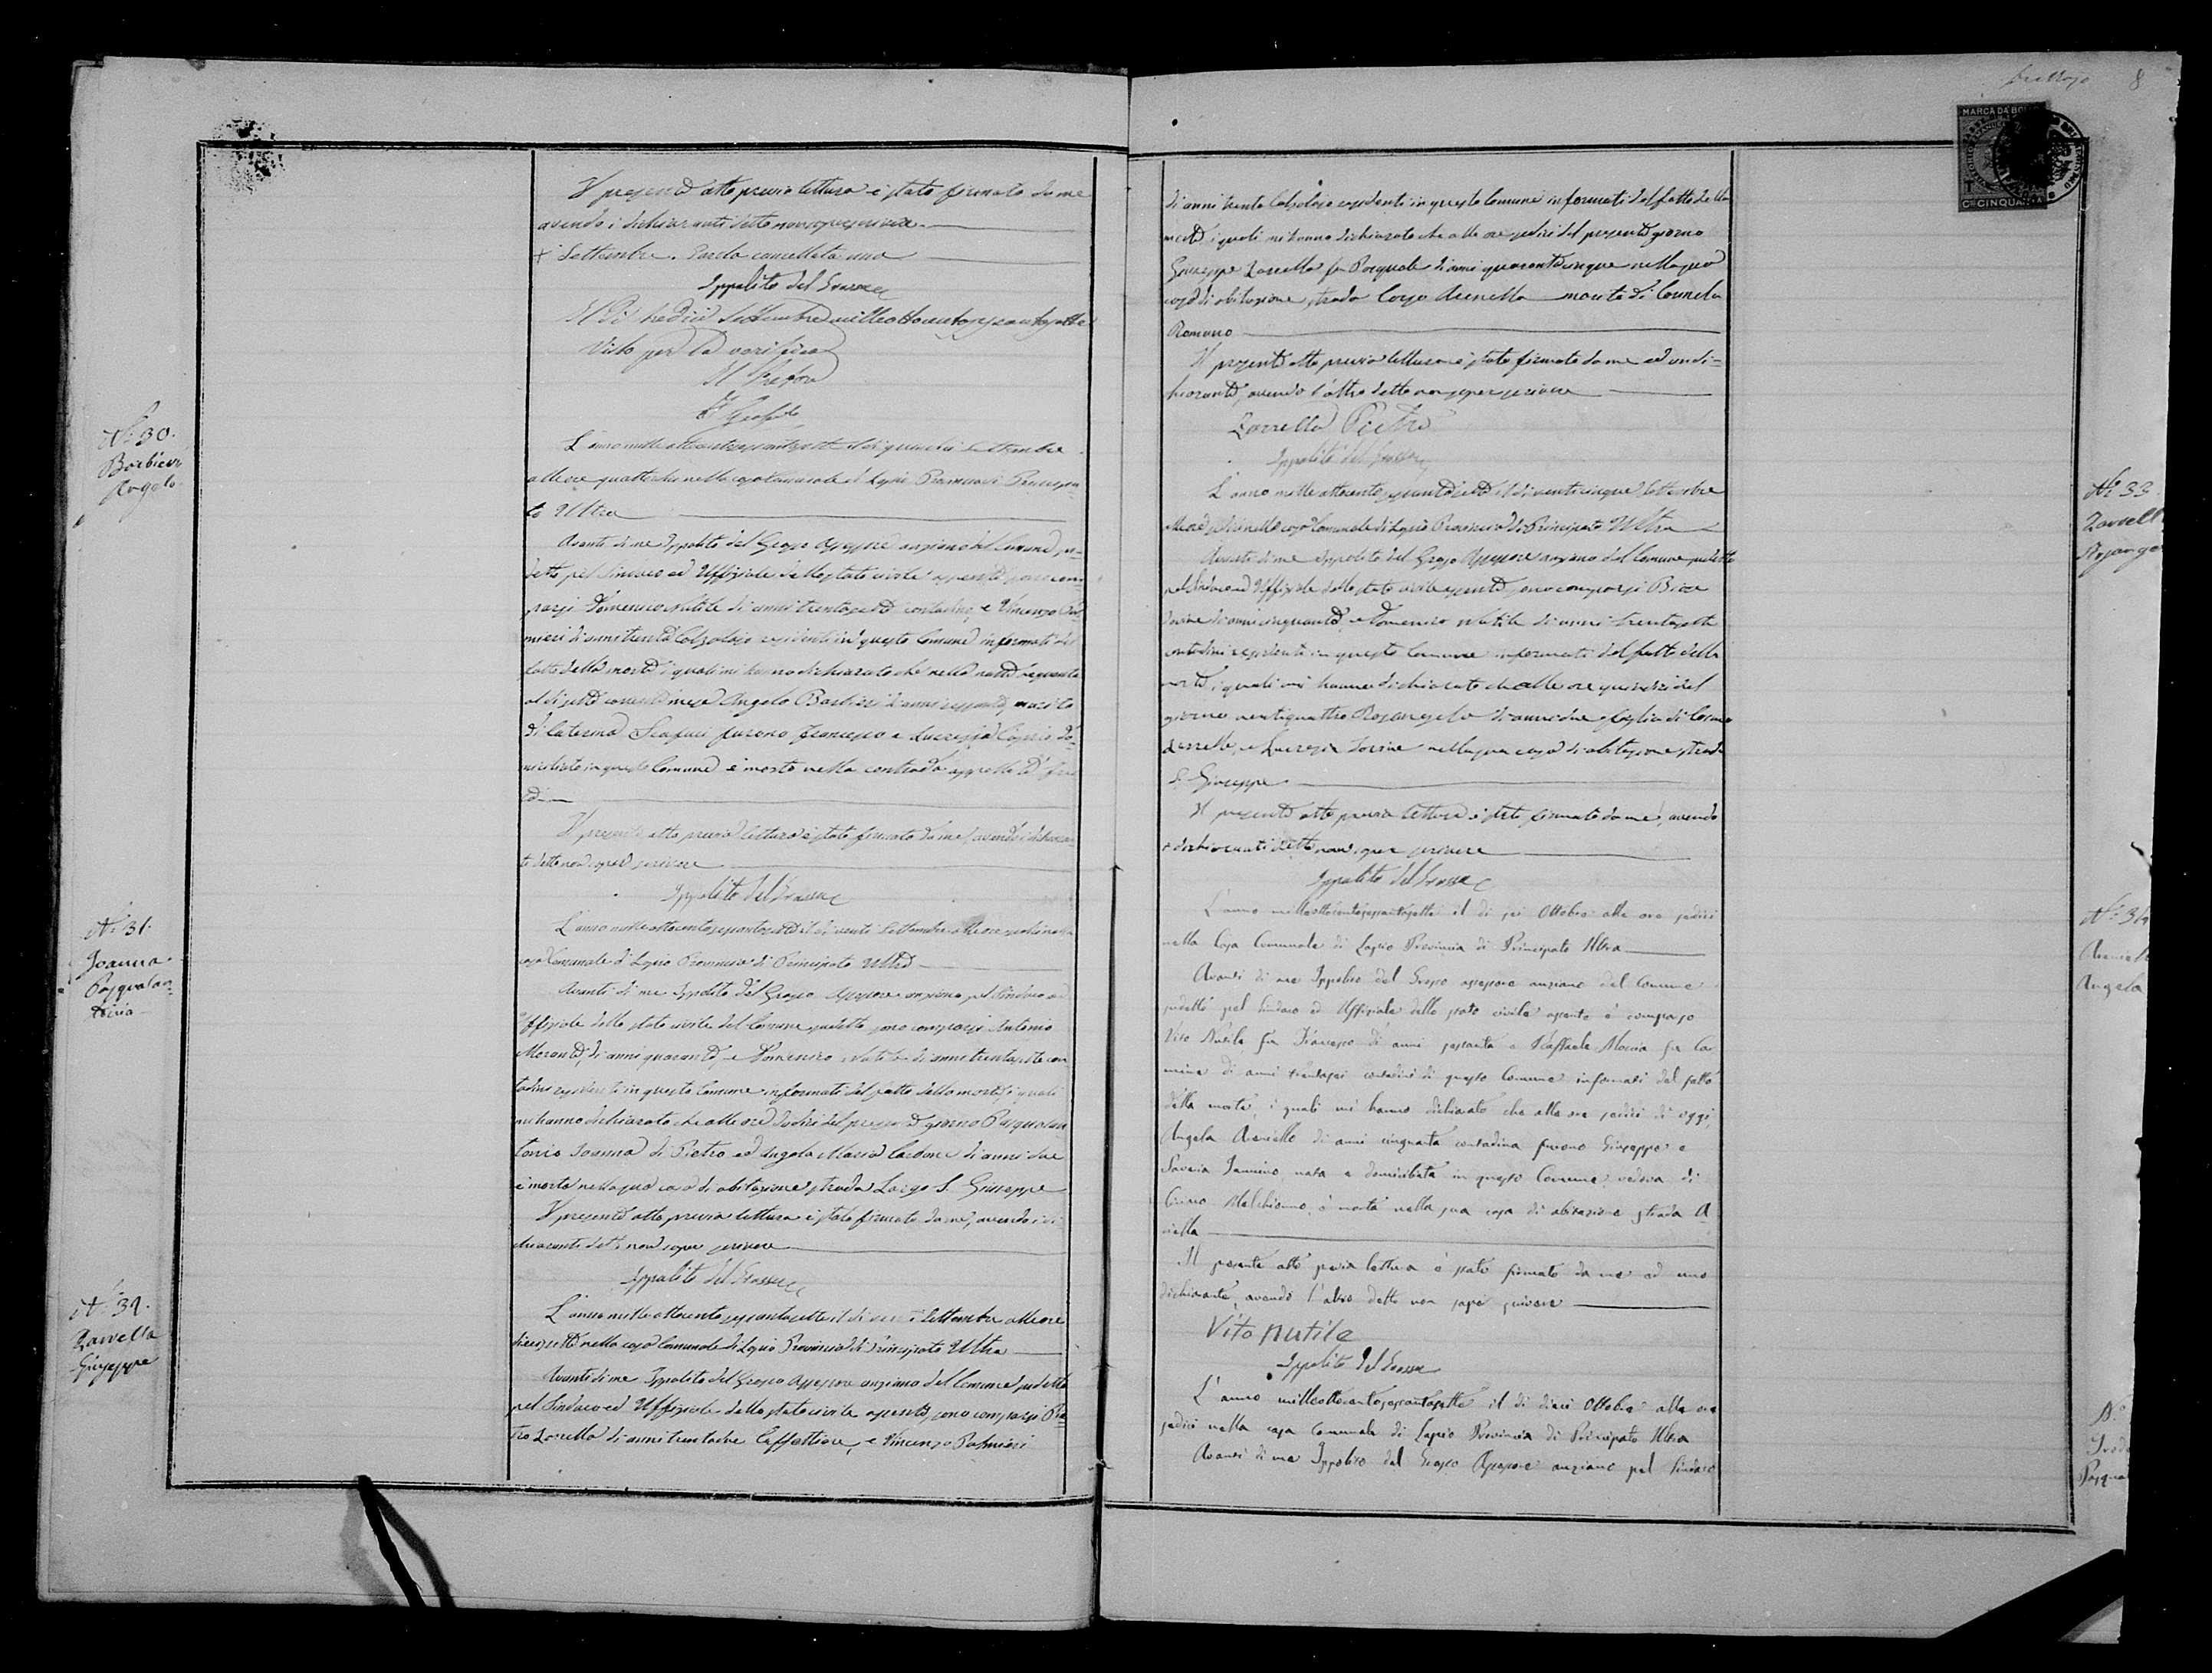 Il presente atto previa lettura è stato firmato da me
avendo i dichiaranti detto non sapere scrivere
+ Settembre. Parola cancellata una
Ippolito del Grosso
Il Di tredici Settembre milleottocentosessantasette
Visto per la verifica
Il Pretore
N.º 30.
Barbieri
Angelo
L'anno mille ottocentosessantasette il dì quindici Settembre
alle ore quattordici nella casa Comunale di Lapio Provincia di Principa-
to Ultra
Avanti di me Ippolito del Grosso Assessore anziano del Comune su-
detto pel Sindaco ed Uffiziale dello stato civile assente sono com-
parsi Domenico Nutile di anni trentasette contadino, e Vincenzo Pal-
mieri di anni trenta Calzolaio residenti in questo Comune informati del
fatto della morte, i quali mi hanno dichiarato che nella notte seguente
al dì sette corrente mese Angelo Barbieri di anni sessanta, marito
di Caterina Scafuri furono Francesco e Lucrezia Caprio, do-
miciliato in questo Comune è morto nella contrada appellata
Il presente atto previa lettura è stato firmato da me, avendo i dichiaran-
ti detto non sapere scrivere
Ippolito del Grosso
N.º 31.
Joanna
Pasqualan-
tonio
L'anno mille ottocentosessantasette il dì venti Settembre alle ore sedici nella
casa Comunale di Lapio Provincia di Principato Ultra
Avanti di me Ippolito del Grosso Assessore anziano pel Sindaco ed
Uffiziale dello stato civile del Comune sudetto sono comparsi Antonio
Morante, di anni quaranta, e Domenico Nutile di anni trentasette con-
tadini residenti in questo Comune informati del fatto della morte, i quali
mi hanno dichiarato che alle ore dodici del presente giorno Pasqualan-
tonio Joanna di Pietro ed Angela Maria Carbone di anni due
è morto nella sua casa di abitazione strada Largo S. Giuseppe
Il presente atto previa lettura è stato firmato da me, avendo i di-
chiaranti detto non sapere scrivere
Ippolito del Grosso
N.º 32.
Zarrella
Giuseppe
L'anno mille ottocentosessantasette il dì venti Settembre alle ore
diciassette nella casa Comunale di Lapio Provincia di Principato Ultra
Avanti di me Ippolito del Grosso Assessore anziano del Comune sudetto
pel Sindaco ed Uffiziale dello stato civile assente, sono comparsi Pie-
tro Zarrella di anni trentatre Caffettiere, e Vincenzo Palmieri
8
MARCA DA BOLLO
CINQUANTA
di anni trenta Calzolaio residenti in questo Comune informati del fatto della
morte, i quali mi hanno dichiarato che alle ore sedici del presente giorno
Giuseppe Zarrella fu Pasquale di anni quarantacinque nella sua
casa di abitazione, strada Corso Arenella marito di Carmela
Romano
Il presente atto previa lettura è stato firmato da me ed un di-
chiarante, avendo l'altro detto non saper scrivere
Zarrella Pietro
Ippolito del Grosso
N.º 33
Zarrell
Rosange
L'anno mille ottocentosessantasette il dì venticinque Settembre
alle ore sedici nella casa Comunale di Lapio Provincia di Principato Ultra
Avanti di me Ippolito del Grosso Assessore anziano del Comune sudetto
pel Sindaco ed Uffiziale dello stato civile assente, sono comparsi
di anni cinquanta, e Domenico Nutile di anni trentasette
contadini residenti in questo Comune informati del fatto della
morte, i quali mi hanno dichiarato che alle ore quindici del
giorno ventiquattro Rosangela di anni due figlia di Cosmo
Zarrella, e Lucrezia nella sua casa di abitazione strada
S. Giuseppe
Il presente atto previa lettura è stato firmato da me, avendo
i dichiaranti detto non saper scrivere
Ippolito del Grosso
N.º 34
Angela
L'anno milleottocentosessantasette il dì sei Ottobre alle ore sedici
nella Casa Comunale di Lapio Provincia di Principato Ultra
Avanti di me Ippolito del Grosso assessore anziano del Comune
sudetto pel Sindaco ed Uffiziale dello stato civile assente è comparso
Vito Nutile fu Francesco di anni sessanta e Raffaele Moccia fu Car-
mine di anni trentasei contadini di questo Comune informati del fatto
della morte, i quali mi hanno dichiarato che alle ore sedici di oggi,
Angela di anni cinquanta contadina furono Giuseppe e
Saveria Iannino, nata e domiciliata in questo Comune vedova di
Ciriaco Melchionno, è morta nella sua casa di abitazione strada A-
riella
Il presente atto previa lettura è stato firmato da me ed uno
dichiarante, avendo l'altro detto non saper scrivere
Vito nutile
Ippolito del Grosso
N.º
Pasqua
L'anno milleottocentosessantasette il dì dieci Ottobre alle ore
sedici nella casa Comunale di Lapio Provincia di Principato Ultra
Avanti di me Ippolito del Grosso Assessore anziano pel Sindaco